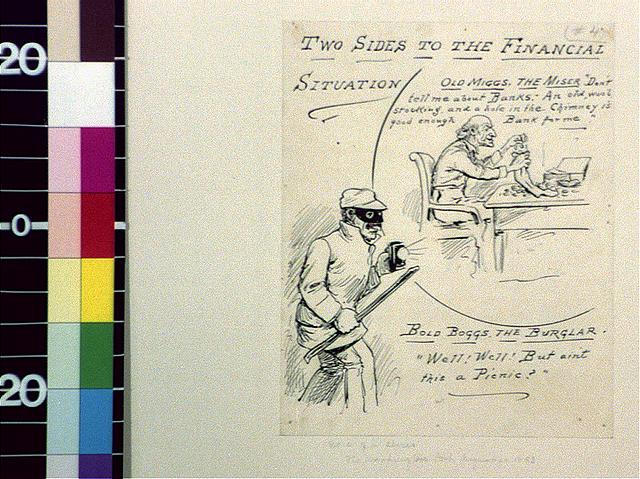 20
0
20
TWO SIDES TO THE FINANCIAL
SITUATION
OLD MIGGS, THE MISER "Don't
tell me about Banks. An old wool
stocking, and a hole in the Chimney is
good enough Bank for me"
BOLD BOGGS, THE BURGLAR.
"Well! Well! But aint
this a Picnic?"